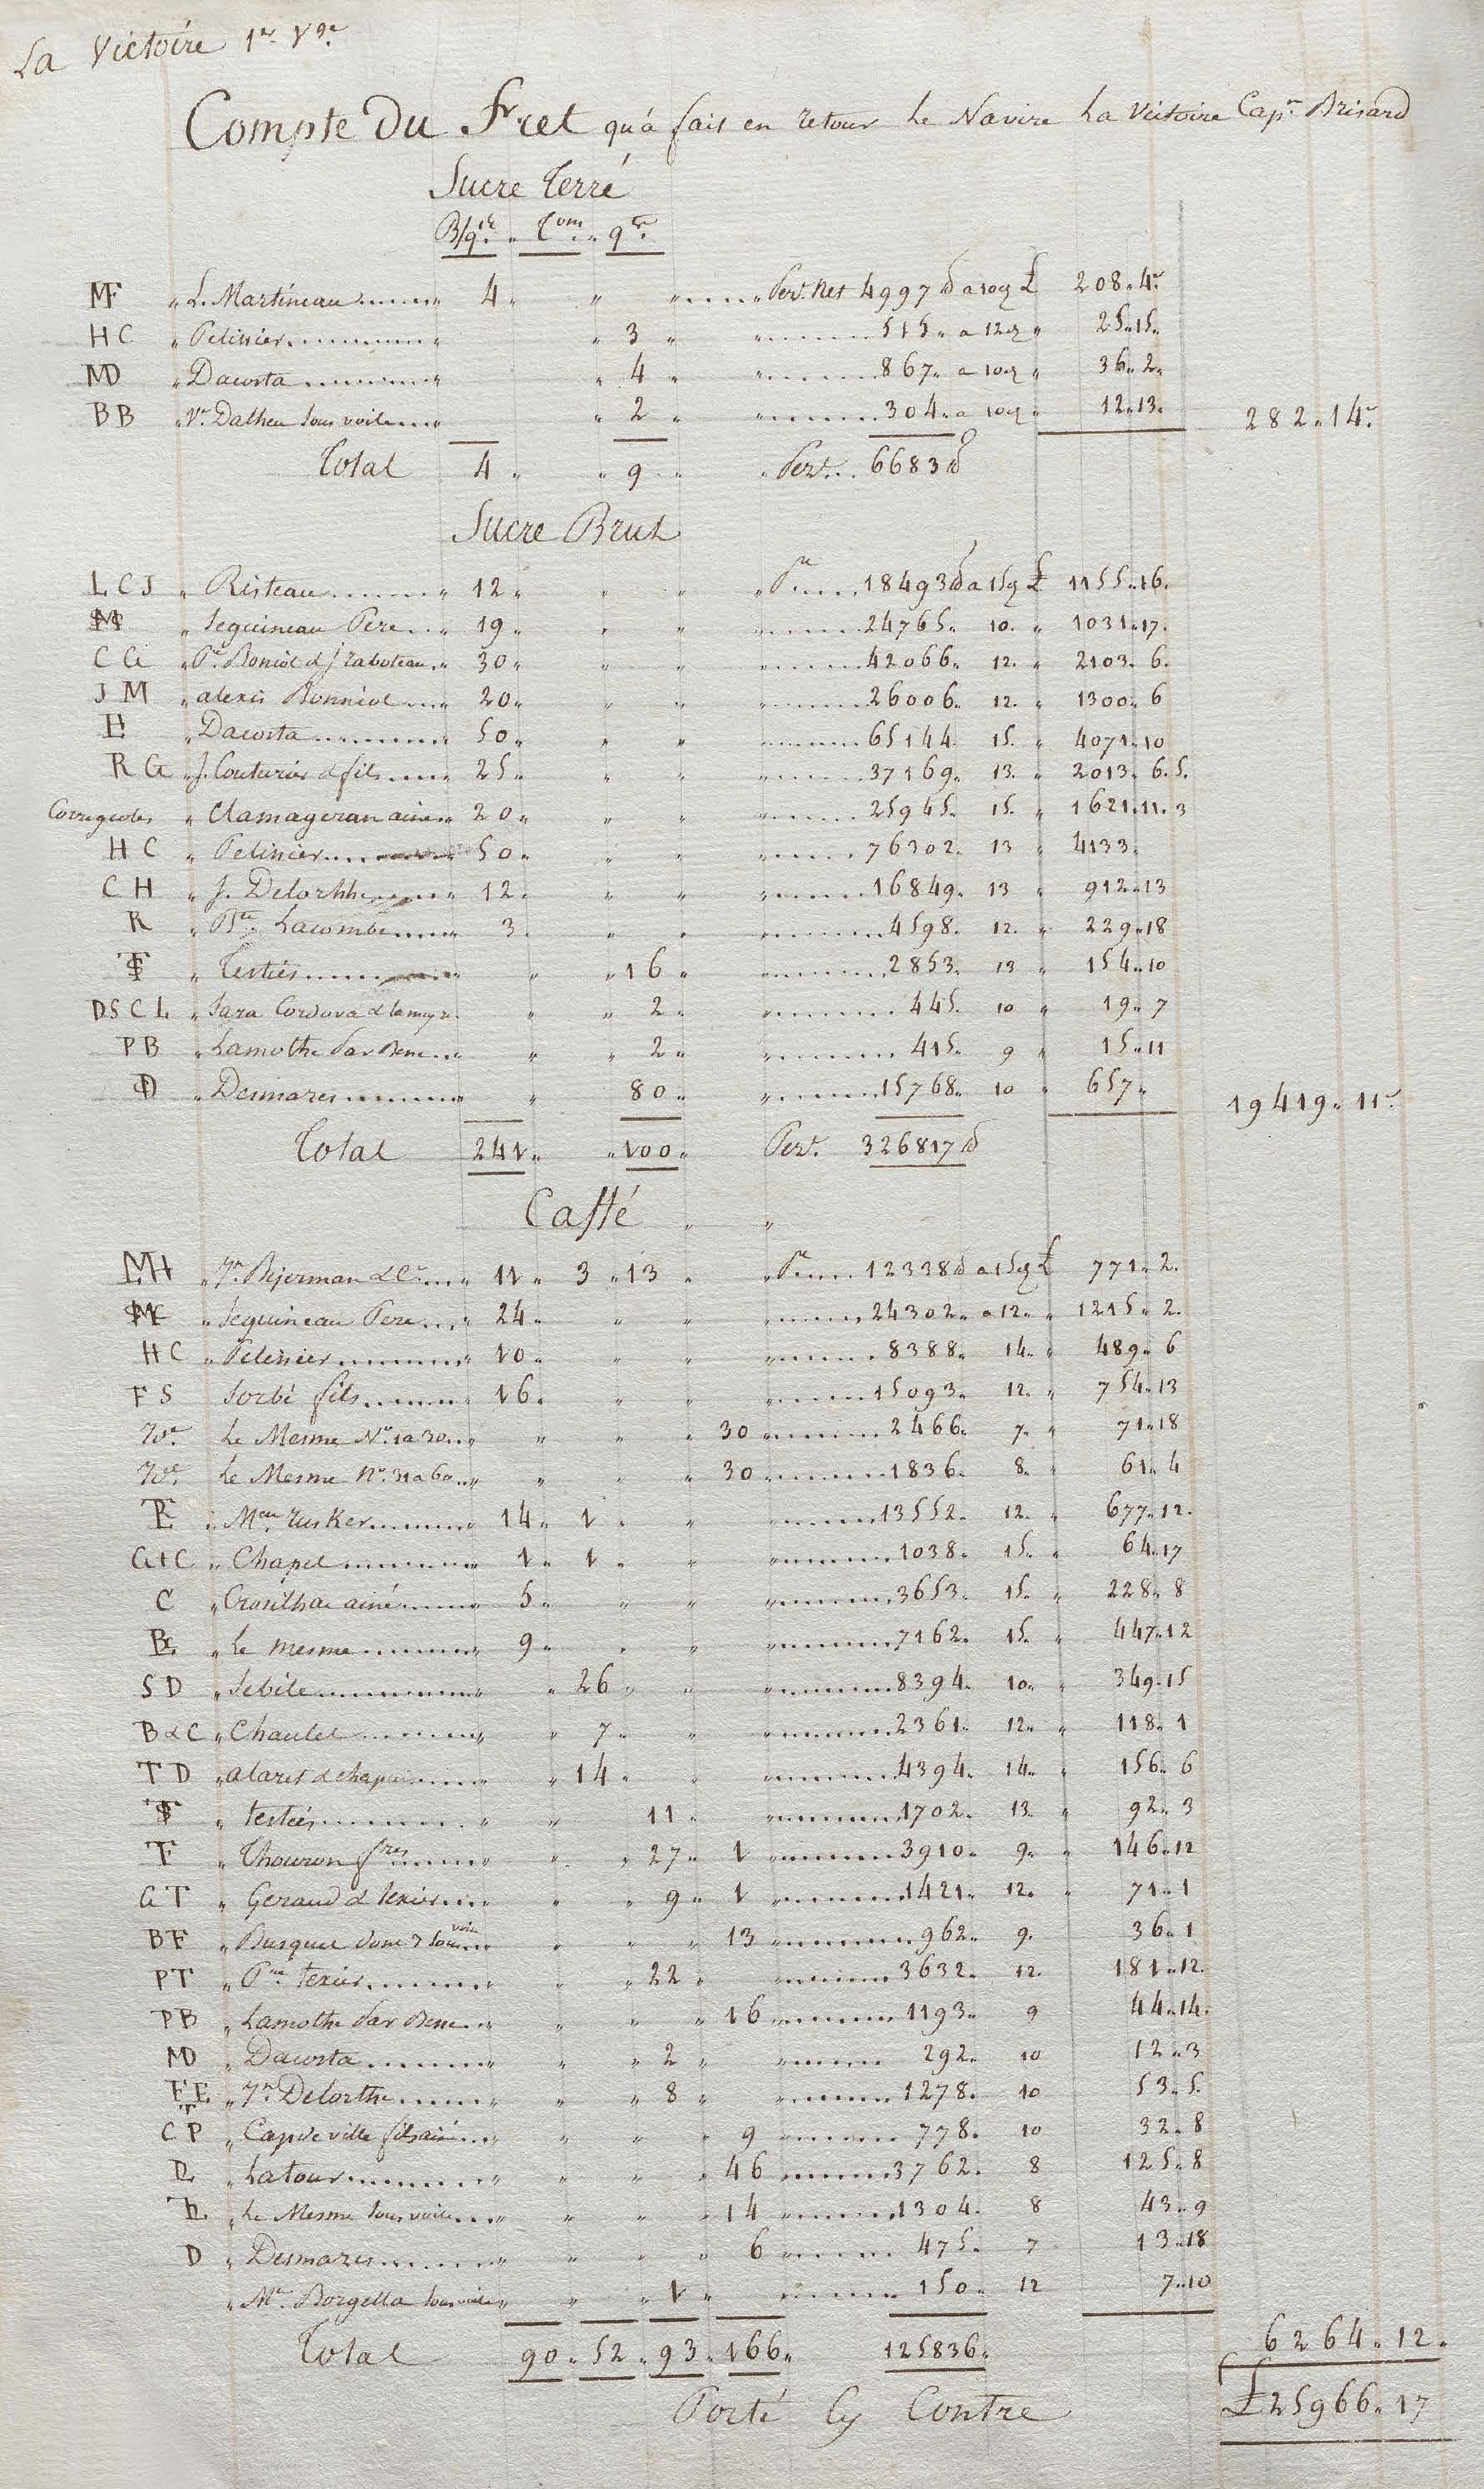 La Victoire 1er Vge
Compte Du Fret qu'a fait en retour Le Navire La Victoire Capne Brisard
Sucre Terré
B/ques " Tons " qts
MF " L. Martineau ...... " 4 " " " ..... " Pezt Net 4997 lb a 10d £ 208 " 4s
HC " Pelissier ......... " " 3 " " ....... 515 " a 12d " 25 " 15 "
MD " Dacosta ......... " " 4 " " ....... 867 " a 10d " 36 " 2 "
BB " Ve Datheu sous voile .... " " 2 " " ....... 304 " a 10d " 12 " 13 " 282 " 14s
Total 4 " " 9 " " Pezt ... 6683 lb
Sucre Brut
LCJ " Risteau ....... " 12 " " " " Pt ..... 18493 lb a 15d £ 1155 " 16.
M " Seguineau Pere ... " 19 " " " " ...... 24765 " 10. " 1031 " 17.
CG " Pre Boniol & J raboteau . " 30 " " " " ...... 42066 " 12. " 2103 " 6.
JM " alexis Bonniol .... " 20 " " " " ...... 26006 " 12. " 1300 " 6
H " Dacosta ......... " 50 " " " " ...... 65144 " 15. " 4071 " 10
RG " J. Couturier & fils .... " 25 " " " " ...... 37169 " 13. " 2013 " 6. 5.
" Clamageran ainé " 20 " " " " ...... 25945 " 15. " 1621 " 11. 3
HC " Pelissier ......... " 50 " " " " ...... 76302 " 13 " 4133.
CH " J. Delorthe ..... " 12 " " " " ...... 16849 " 13 " 912 " 13
R " Bte Lacombe ..... " 3 " " " " ...... 4598 " 12. " 229 " 18
" Testier ......... " " " 16 " " ....... 2853 " 13 " 154 " 10
DSCL " Sara Cordova & " " 2 " " ....... 445 " 10 " 19 " 7
PB " Lamothe Par Bene ... " " " 2 " " ....... 415 " 9 " 15 " 11
D " Desmares ......... " " 80 " " ...... 15768 " 10 " 657 " 19419 " 11s
Total 241 " " 100 " Pezt 326817 lb
Caffé " "
MH " Jn Bejerman & Ce .... " 11 " 3 " 13 " " Pt ..... 12338 lb a 15d £ 771 " 2.
MC " Seguineau Pere .... " 24 " " " " ...... 24302 " a 12 " " 1215 " 2.
HC " Pelissier ......... " 10 " " " " ...... 8388 " 14 " " 489 " 6
FS Sorbé fils ....... " 16 " " " ...... 15093 " 12 " " 754 " 13
Idm Le Mesme No 1 a 30 .. " " " " 30 " ....... 2466 " 7 " " 71 " 18
Idm Le Mesme No 31 a 60 .. " " " " 30 " ....... 1836 " 8 " " 61 " 4
" Mcu rusker ........ " 14 " 1 . " " ...... 13552 " 12 " " 677 " 12.
G+C " Chapel ......... " 1 " 1 . " " ....... 1038 " 15 " " 64 " 17
C " Crosilhac ainé ...... " 5 " " " " ....... 3653 " 15 " " 228 " 8
Bc " Le mesme ........ " 9 " . " " ....... 7162 " 15 " " 447 " 12
SD " Sebile ........... " " 26 " " " ....... 8394 " 10 " " 349 " 15
B&C " Chaulet ......... " " 7 " " " ....... 2361 " 12 " " 118 " 1
TD " alaret & chapuis ..... " " 14 " . " ....... 4394 " 14 " 156 " 6
" testier ......... " " 11 " " ....... 1702 " 13 " " 92 " 3
T " Thouron fres ....... " . " 27 " 1 " ....... 3910 " 9 " " 146 " 12
GT " Geraud & texier .... " " " 9 " 1 " ....... 1421 " 12 " " 71 " 1
BF " Busquet dont 7 sous voile " " " " 13 " ....... 962 " 9. 36 " 1
PT " Pre texier ........ " " " 22 " " ...... 3632 " 12. 181 " 12.
PB " Lamothe Par Bene .. " " " " 16 " ....... 1193 " 9 44 " 14.
MD " Dacosta ......... " " " 2 " " ...... 292 " 10 12 " 3
" Jn Delorthe ....... " " " 8 " " ...... 1278 " 10 53 " 5.
CP " Capdeville fils ainé .. " " " " 9 " ....... 778 " 10 32 " 8
" Latour .......... " " " " 46 " ...... 3762 " 8 125 " 8
" Le Mesme sous voile ... " " " " 14 " ...... 1304 " 8 43 " 9
D " Desmares ........ " " " " 6 " ...... 475 " 7 13 " 18
" Mr Borgella sous voile " " " 1 " " ...... 150 " 12 7 " 10
Total 90 " 52 " 93 " 166 " 125836 " 6264 " 12.
Porté Cy Contre £25966 " 17